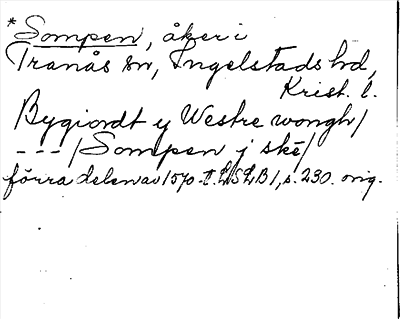 * Sompen, åker i
Tranås sn, Ingelstads hd,
Krist. l.
Bygiordt y Westre wongh/
---/Sompen j ske/
förra delen av 1570-t. LSLB1, s. 230. orig.